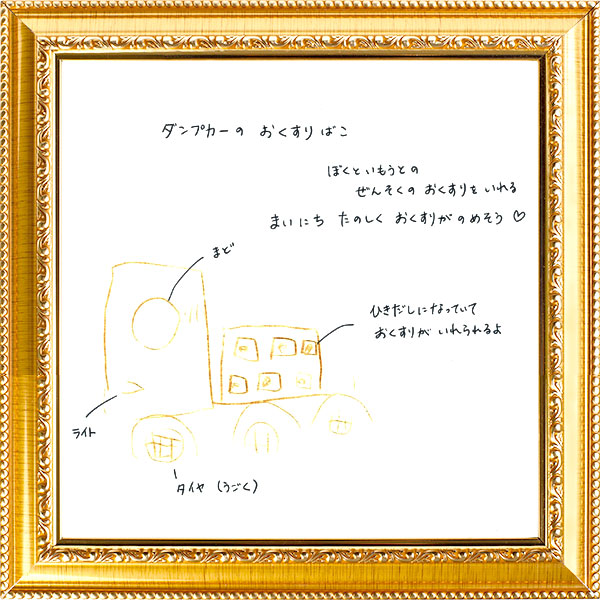 ダンプカーの おくすりばこ
ぼくといもうとの
ぜんそくの おくすりを いれる
まいにち たのしく おくすりが のめそう♡
まど
ひきだしになっていて
おくすりが いれられるよ
ライト
タイヤ (うごく)